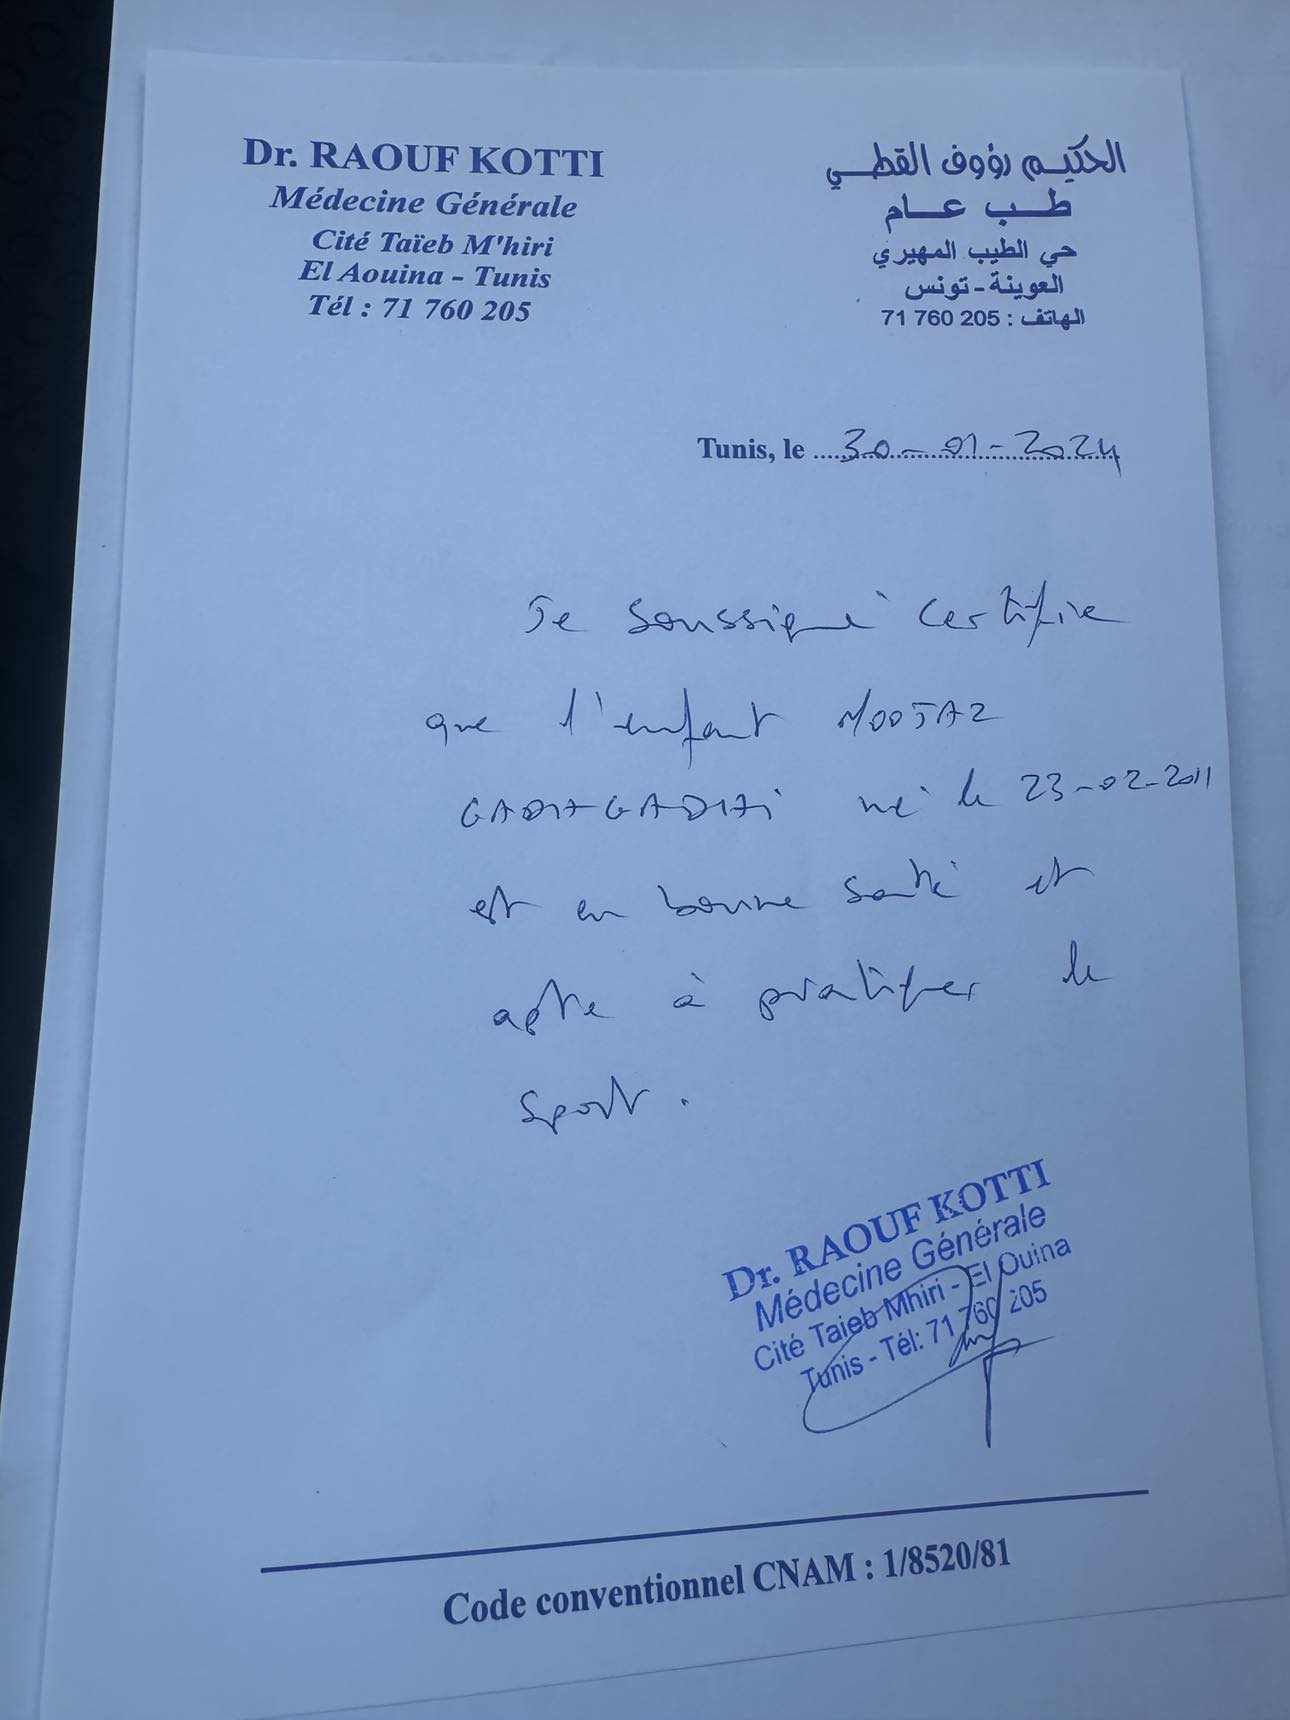 Dr. RAOUF KOTTI
Médecine Générale
Cité Taïeb M'hiri
El Aouina - Tunis
Tél : 71 760 205
الحكيم رؤوف القطي
طب عام
حي الطيب المهيري
العوينة - تونس
الهاتف : 205 760 71
Tunis, le 30-01-2024
Je soussigné certifie
que l'enfant
né le 23-02-2011
est en bonne santé et
apte à pratiquer le
sport.
Dr. RAOUF KOTTI
Médecine Générale
Cité Taieb Mhiri - El Ouina
Tunis - Tél: 71 760 205
Code conventionnel CNAM : 1/8520/81